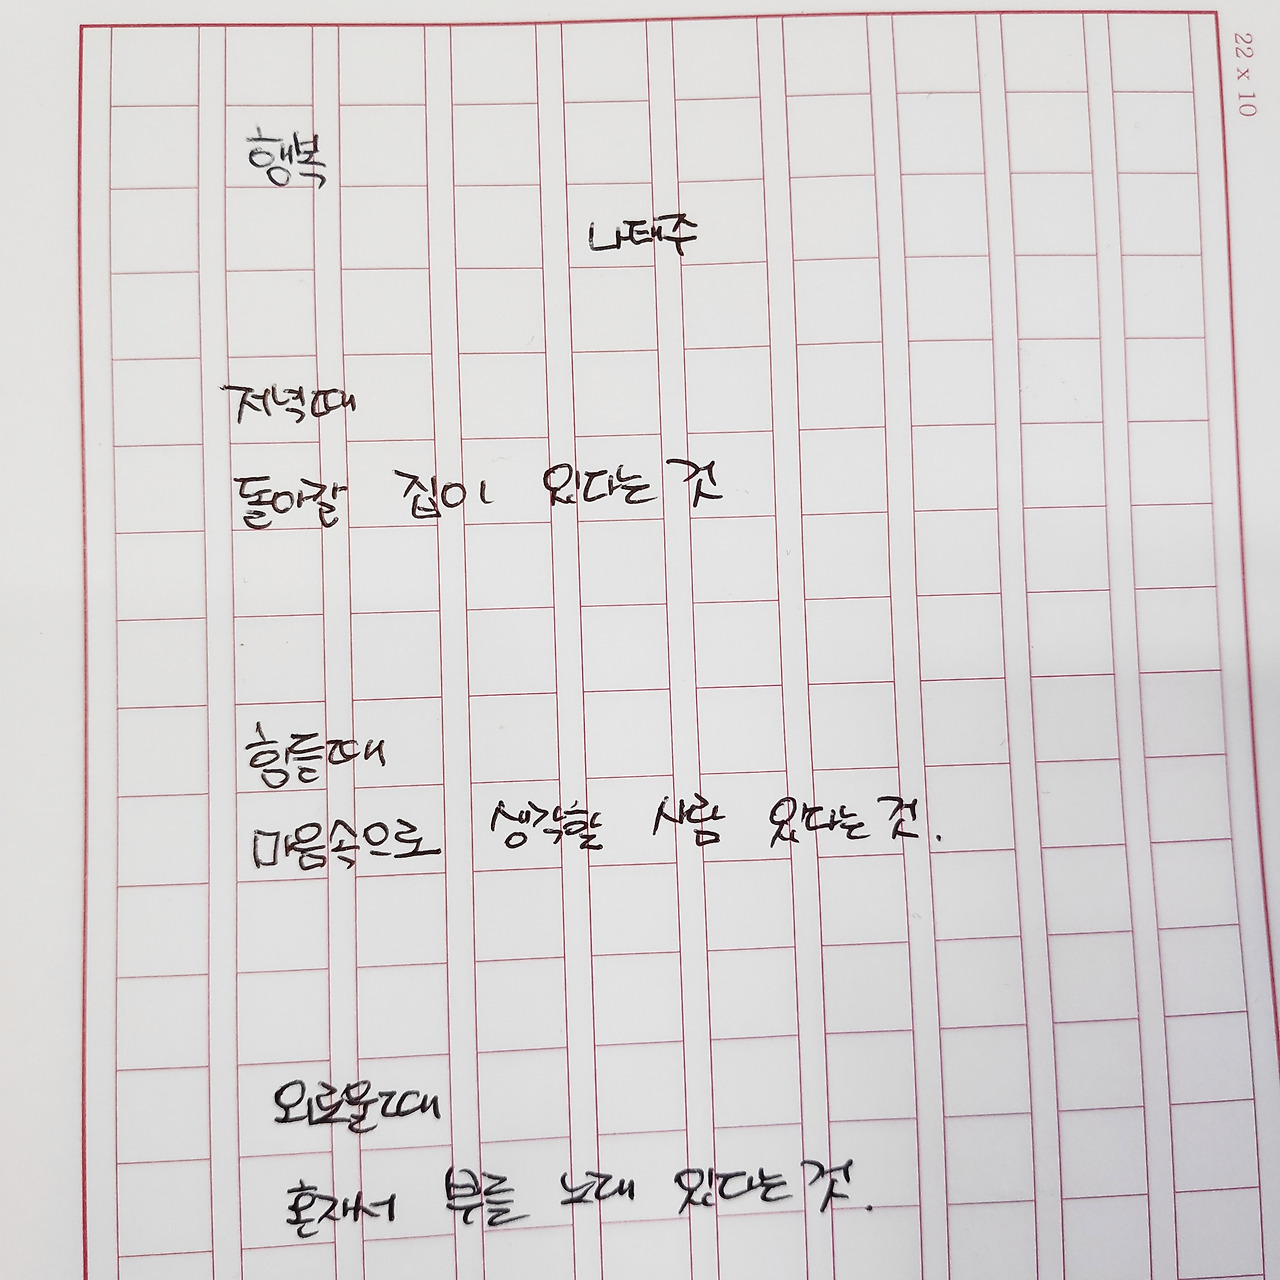 22 x 10
행복
나태주
저녁때
돌아갈 집이 있다는 것
힘들때
마음속으로 생각할 사람 있다는 것.
외로울때
혼자서 부를 노래 있다는 것.